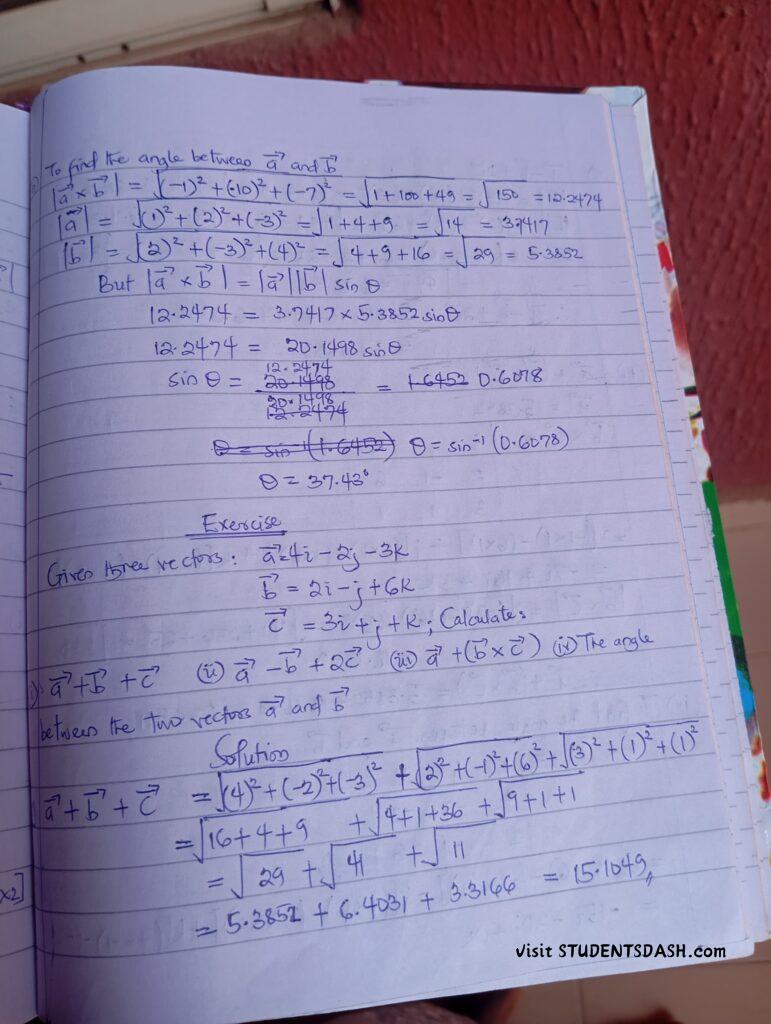 To find the angle between a⃗ and b⃗
|a⃗ × b⃗| = √(-1)² + (-10)² + (-7)² = √1 + 100 + 49 = √150 = 12.2474
|a⃗| = √(1)² + (2)² + (-3)² = √1 + 4 + 9 = √14 = 3.7417
|b⃗| = √(2)² + (-3)² + (4)² = √4 + 9 + 16 = √29 = 5.3852
But |a⃗ × b⃗| = |a⃗||b⃗| sin θ
12.2474 = 3.7417 × 5.3852 sinθ
12.2474 = 20.1498 sinθ
12.2474
sin θ = 20.1498 = 1.6452 0.6078
20.1498
12.2474
θ = sin⁻¹(1.6452) θ = sin⁻¹ (0.6078)
θ = 37.43°
Exercise
Given three vectors: a⃗ = 4i - 2j - 3k
b⃗ = 2i - j + 6k
c⃗ = 3i + j + k; Calculate:
i) a⃗ + b⃗ + c⃗ (ii) a⃗ - b⃗ + 2c⃗ (iii) a⃗ + (b⃗ × c⃗) (iv) The angle
between the two vectors a⃗ and b⃗
Solution
a⃗ + b⃗ + c⃗ = √(4)² + (-2)² + (-3)² + √(2)² + (-1)² + (6)² + √(3)² + (1)² + (1)²
= √16 + 4 + 9 + √4 + 1 + 36 + √9 + 1 + 1
= √29 + √41 + √11
= 5.3852 + 6.4031 + 3.3166 = 15.1049
×2]
visit STUDENTSDASH.com